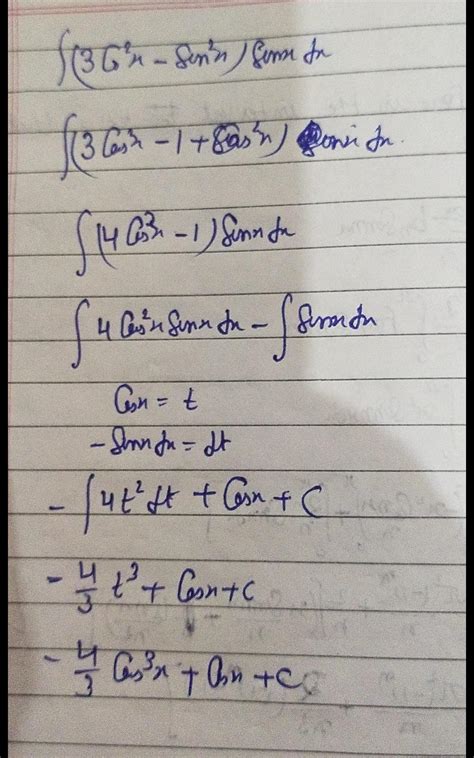 ∫(3 Cos²x − Sin²x) Sinx dx
∫(3 Cos²x − 1 + Cos²x) Sinx dx.
∫(4 Cos²x − 1) Sinx dx
∫ 4 Cos²x Sinx dx − ∫ Sinx dx
Cosx = t
− Sinx dx = dt
− ∫ 4t² dt + Cosx + C
− 4/3 t³ + Cosx + C
− 4/3 Cos³x + Cosx + C